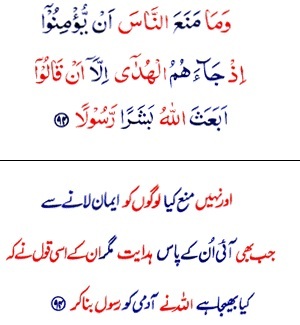 وَمَا مَنَعَ النَّاسَ اَنْ يُّؤْمِنُوْۤا
اِذْ جَآءَهُمُ الْهُدٰۤى اِلَّاۤ اَنْ قَالُوْۤا
اَبَعَثَ اللّٰهُ بَشَرًا رَّسُوْلًا ﴿۹۴﴾
اور نہیں منع کیا لوگوں کو ایمان لانے سے
جب بھی آئی اُن کے پاس ہدایت مگر ان کے اسی قول نے کہ
کیا بھیجا ہے اللہ نے آدمی کو رسول بنا کر ﴿۹۴﴾